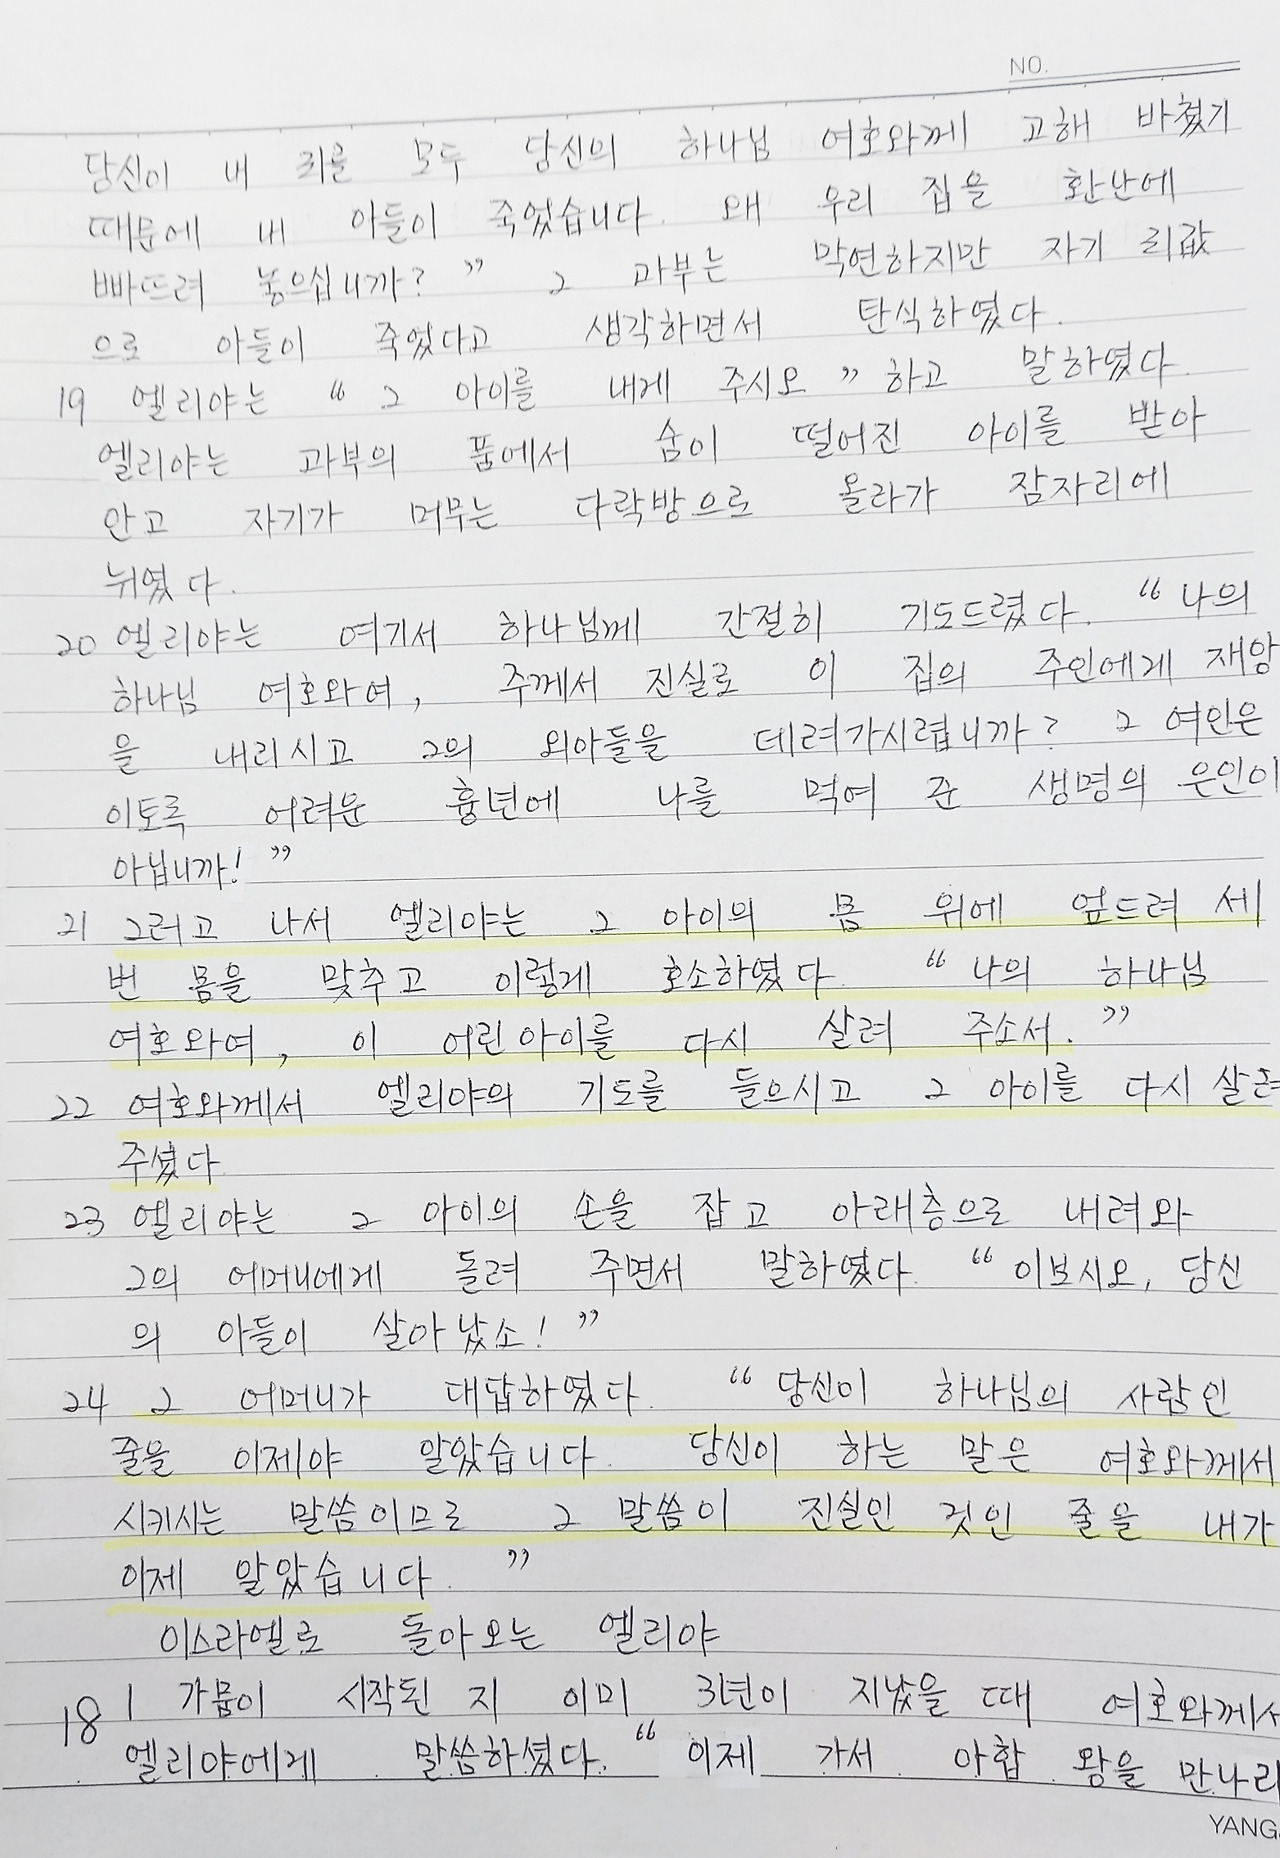 NO.
당신이 내 죄를 모두 당신의 하나님 여호와께 고해 바쳤기
때문에 내 아들이 죽었습니다. 왜 우리 집을 환난에
빠뜨려 놓으십니까? ” 그 과부는 막연하지만 자기 죄값
으로 아들이 죽었다고 생각하면서 탄식하였다.
19 엘리야는 “ 그 아이를 내게 주시오 ” 하고 말하였다.
엘리야는 과부의 품에서 숨이 떨어진 아이를 받아
안고 자기가 머무는 다락방으로 올라가 잠자리에
뉘였다.
20 엘리야는 여기서 하나님께 간절히 기도드렸다. “ 나의
하나님 여호와여, 주께서 진실로 이 집의 주인에게 재앙
을 내리시고 그의 외아들을 데려가시렵니까? 그 여인은
이토록 어려운 흉년에 나를 먹여 준 생명의 은인이
아닙니까! ”
21 그러고 나서 엘리야는 그 아이의 몸 위에 엎드려 세
번 몸을 맞추고 이렇게 호소하였다. “ 나의 하나님
여호와여, 이 어린아이를 다시 살려 주소서. ”
22 여호와께서 엘리야의 기도를 들으시고 그 아이를 다시 살려
주셨다.
23 엘리야는 그 아이의 손을 잡고 아래층으로 내려와
그의 어머니에게 돌려 주면서 말하였다. “ 이보시오, 당신
의 아들이 살아났소! ”
24 그 어머니가 대답하였다. “ 당신이 하나님의 사람인
줄을 이제야 알았습니다. 당신이 하는 말은 여호와께서
시키시는 말씀이므로 그 말씀이 진실인 것인 줄을 내가
이제 알았습니다. ”
이스라엘로 돌아오는 엘리야
18 1 가뭄이 시작된 지 이미 3년이 지났을 때 여호와께서
엘리야에게 말씀하셨다. “ 이제 가서 아합 왕을 만나라
YANG